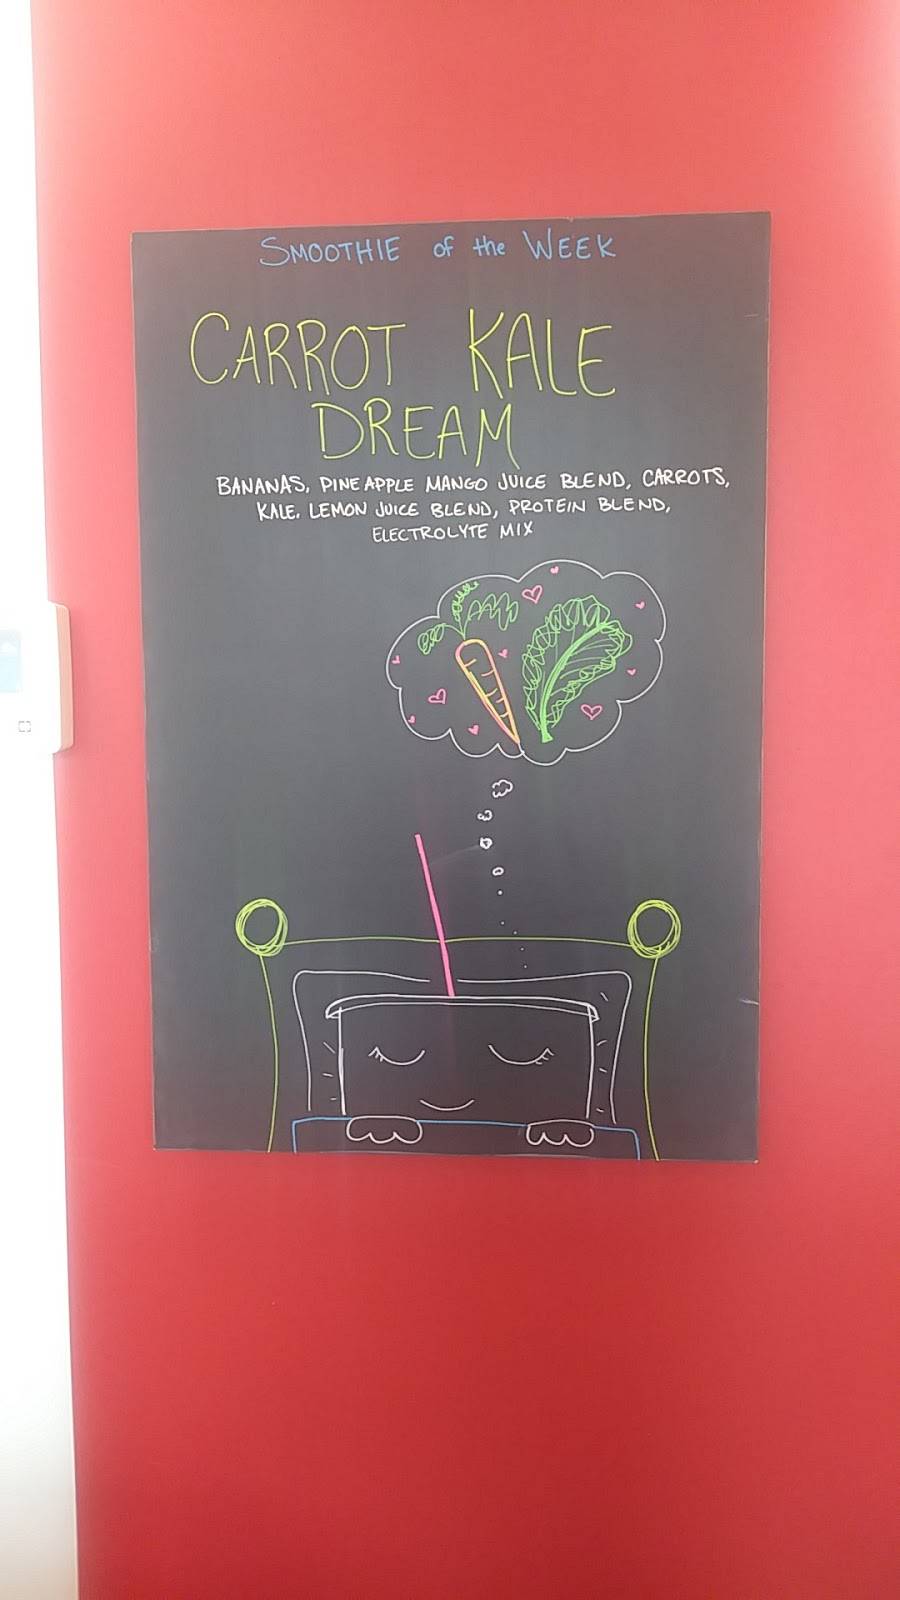 SMOOTHIE of the WEEK
CARROT KALE
DREAM
BANANAS, PINEAPPLE MANGO JUICE BLEND, CARROTS,
KALE, LEMON JUICE BLEND, PROTEIN BLEND,
ELECTROLYTE MIX